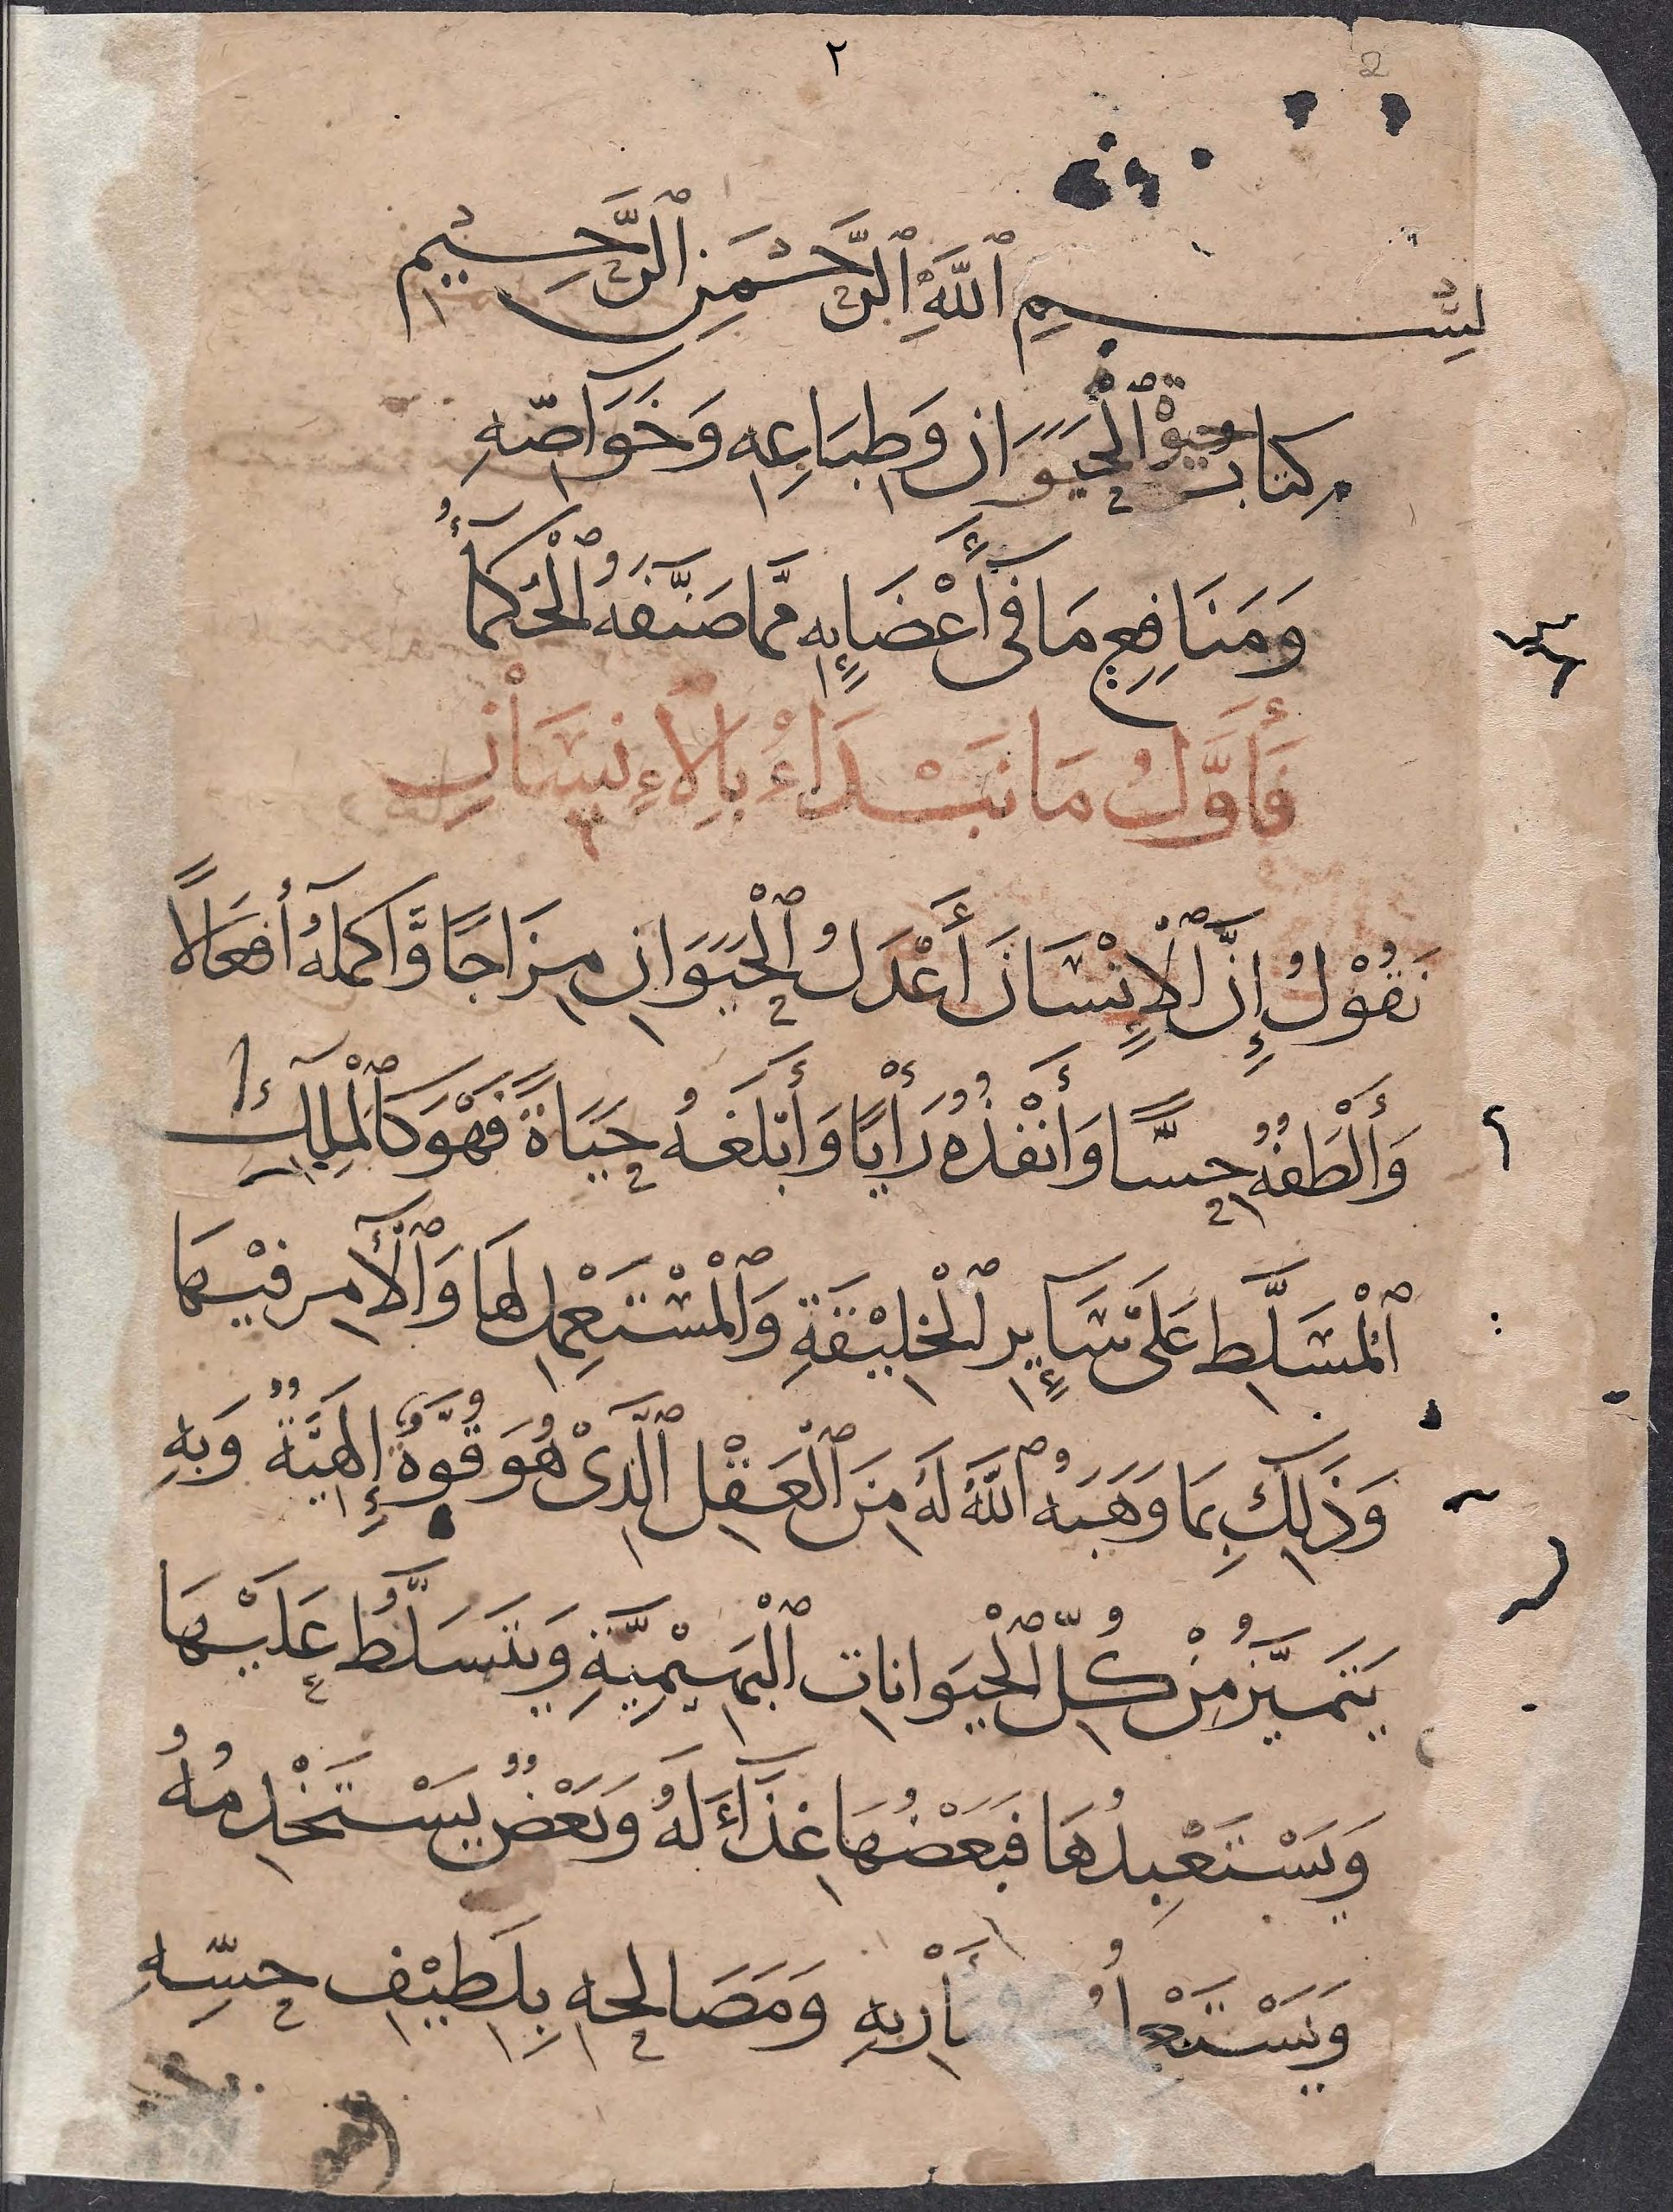 ٢
2
بِسْمِ ٱللَّهِ ٱلرَّحْمَنِ ٱلرَّحِيْمِ
كِتَابُ حَيٰوةِ ٱلْحَيَوَانِ وَطِبَاعِهِ وَخَوَاصِّهِ
وَمَنَافِعِ مَا فِي أَعْضَايِهِ مِمَّا صَنَّفَهُ ٱلْحُكَمآءُ
فَأَوَّلُ مَا نَبْدَاءُ بِالْاءِنْسَانِ
نَقُوْلُ إِنَّ ٱلْإِنْسَانَ أَعْدَلُ ٱلْحَيَوَانِ مِزَاجًا وَّاَكمَلُهُ أَفعَالًا
وَأَلْطَفُهُ حِسًّا وَأَنْفَذُهُ رَأْيًا وَأَبْلَغَهُ حَيَاةً فَهْوَ كَٱلْمَلِكِ
ٱلْمُسَلَّطِ عَلَى سَآيِرِ ٱلْخَلِيْقَةِ وَٱلْمُسْتَعْمِلِ لَهَا وَٱلْآمِرِ فِيْهَا
وَذَلِكَ بِمَا وَهَبَهُ ٱللَّهُ لَهُ مِنَ ٱلْعَقْلِ ٱلَّذِىْ هُوَ قُوَّةٌ إِلَهِيَّةٌ وَبِهِ
يَتَمَيَّزُ مِنْ كُلِّ ٱلْحَيَوَانَاتِ ٱلْبَهِيْمِيَّةِ وَيَتَسَلَّطُ عَلَيْهَا
وَيَسْتَعْبِدُهَا فَبَعْضُهَا غِذَآءً لَهُ وَبَعْضٌ يَسْتَخْدِمُهُ
وَيَسْتَعْمِلُهُ مَأْرِبِهِ وَمَصَالِحِهِ بِلَطِيْفِ حِسِّهِ